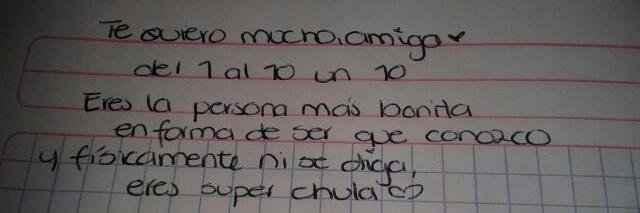 Te quiero mucho, amigo ♥
del 1 al 10 un 10
Eres la persona más bonita
en forma de ser que conozco
y físicamente ni se diga,
eres super chula